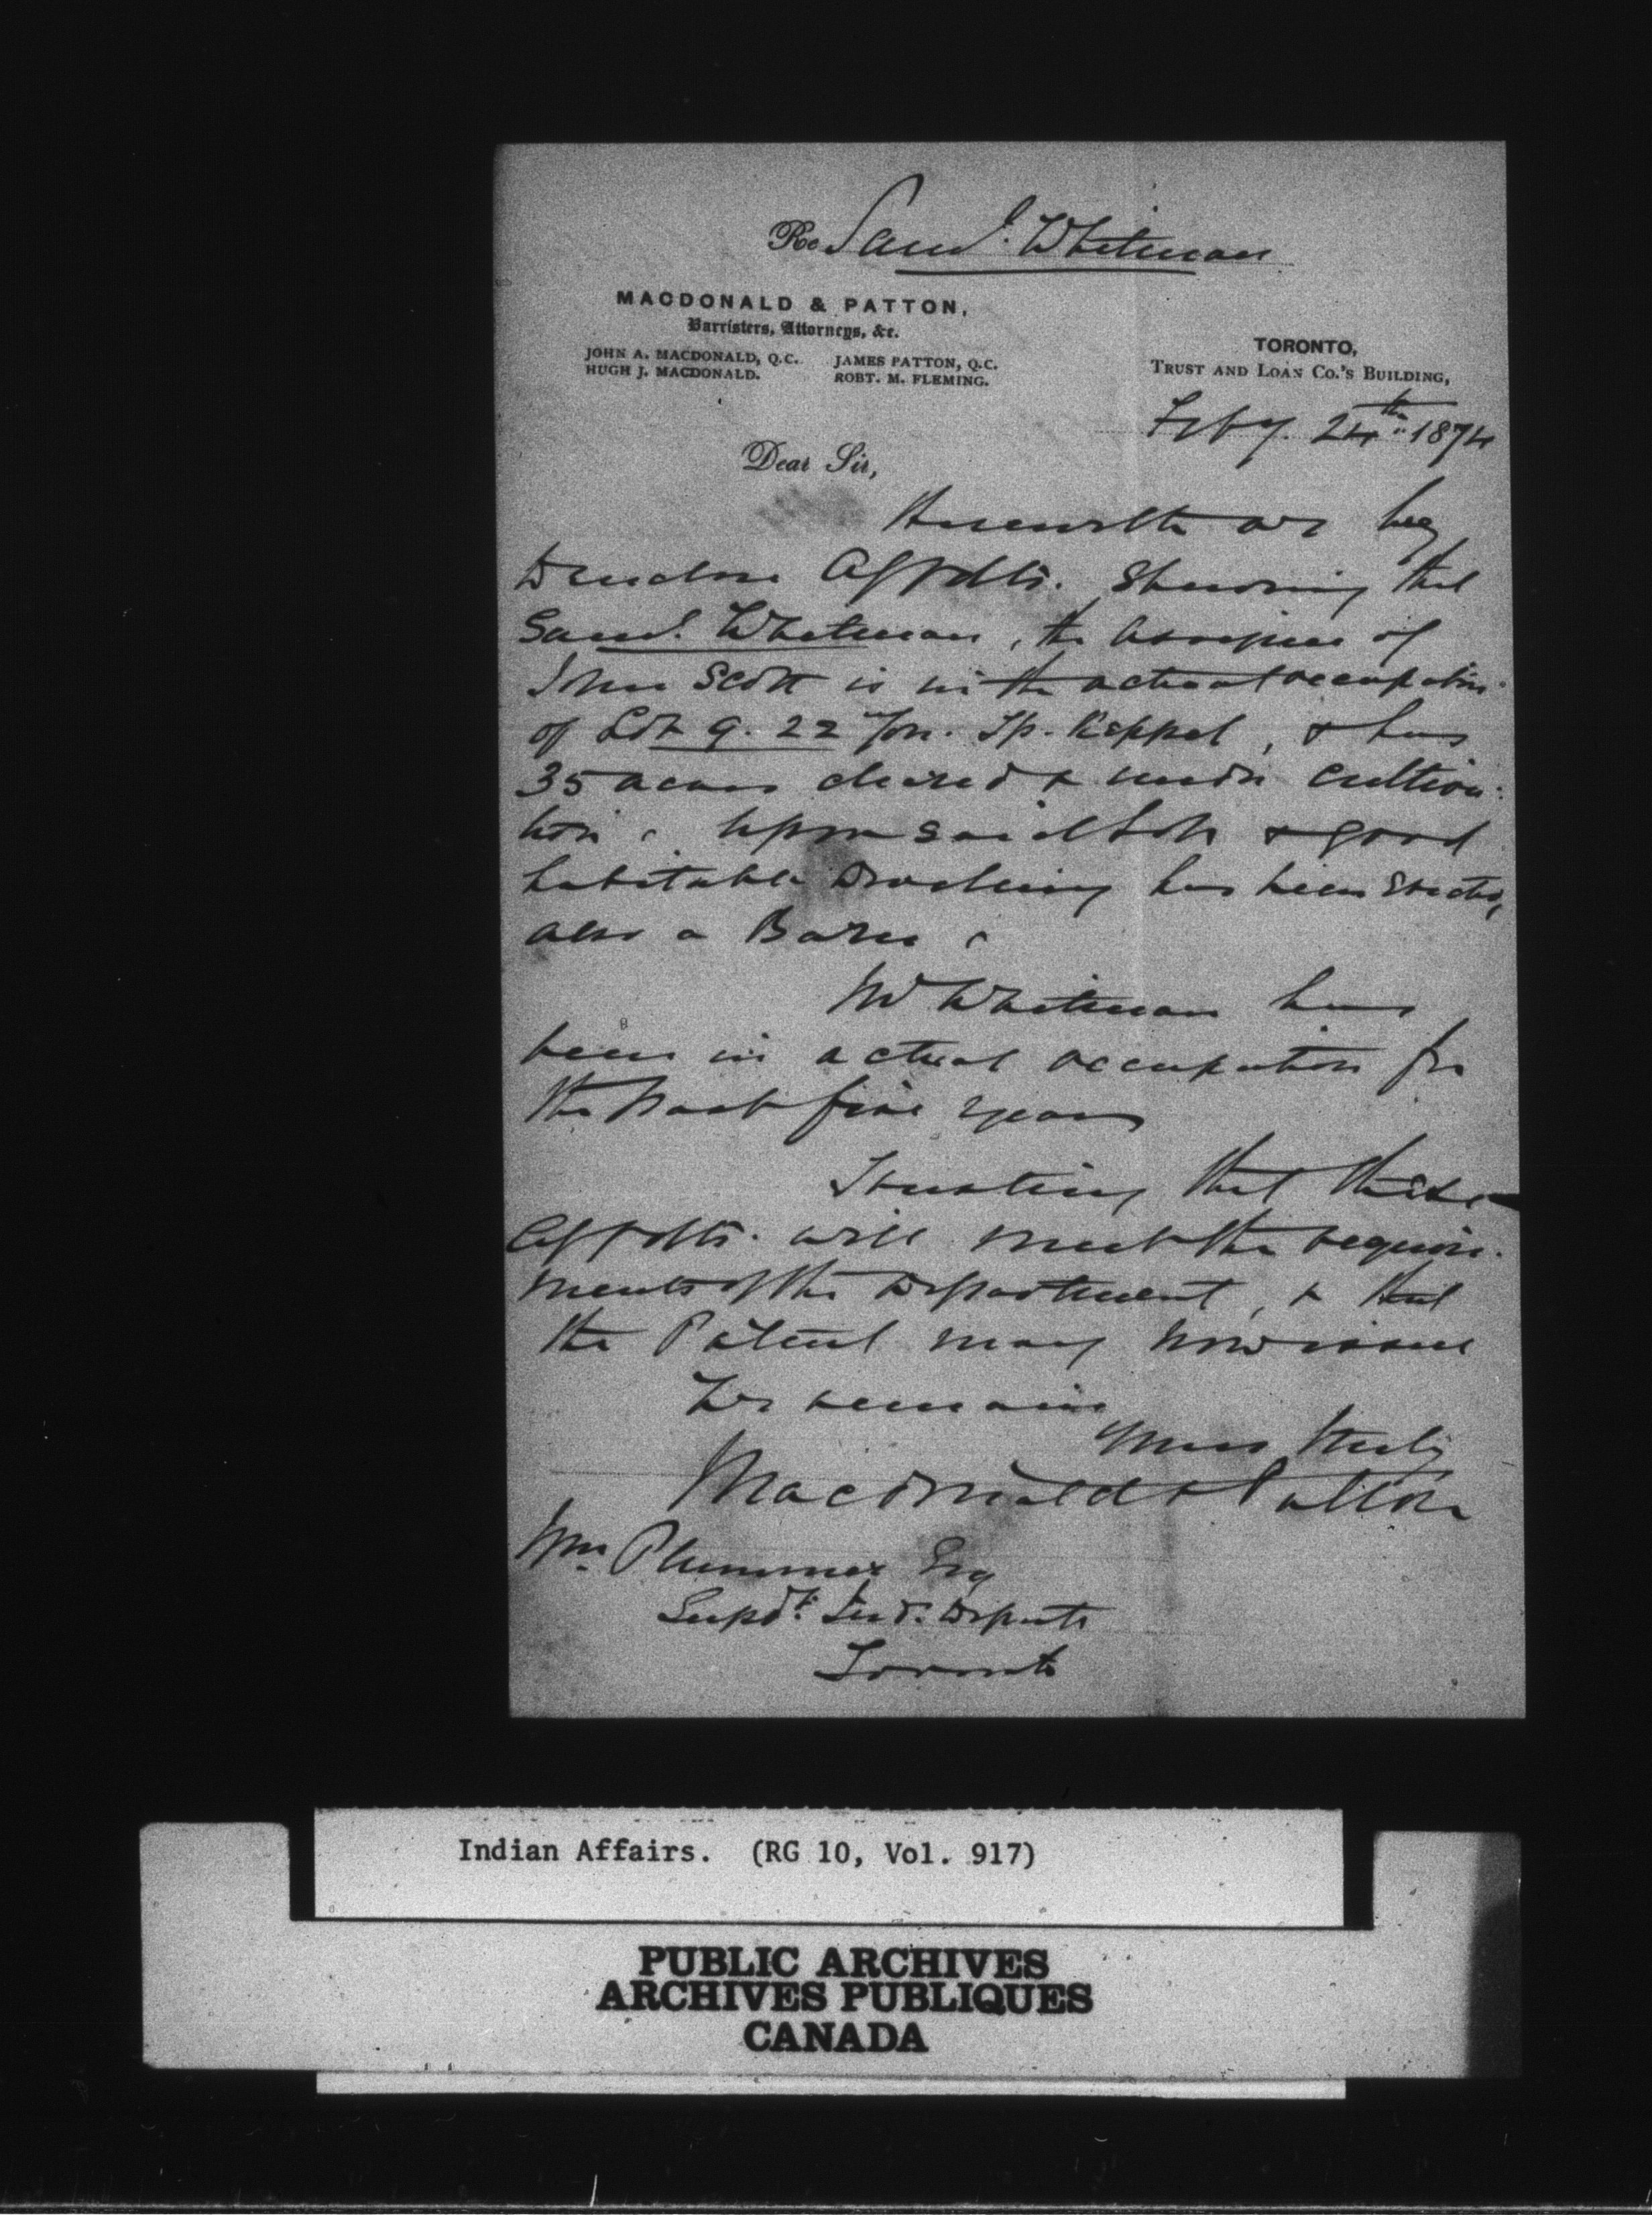 Re Saml. Whitman
MACDONALD & PATTON,
Barristers, Attorneys, &c.
JOHN A. MACDONALD, Q.C. JAMES PATTON, Q.C.
HUGH J. MACDONALD. ROBT. M. FLEMING.
TORONTO,
TRUST AND LOAN CO.'S BUILDING,
Feby. 24th 1874
Dear Sir,
Herewith we beg
to enclose Affdts. Shewing that
Saml. Whitman, the Assignee of
John Scott is in the actual occupation
of Lot 9. 22 Con. Tp. Keppel, & has
35 acres cleared & under cultiva-
tion. Upon said Lot a good
habitable Dwelling has been erected,
also a Barn.
Mr Whitman has
been in actual occupation for
the past five years
Trusting that these
Affdts. will meet the require-
ments of the Department, & that
the Patent may now issue
We remain
Yours truly
Macdonald & Patton
Wm. Plummer Esq
Supdt. Ind. Depmt
Toronto
Indian Affairs. (RG 10, Vol. 917)
PUBLIC ARCHIVES
ARCHIVES PUBLIQUES
CANADA